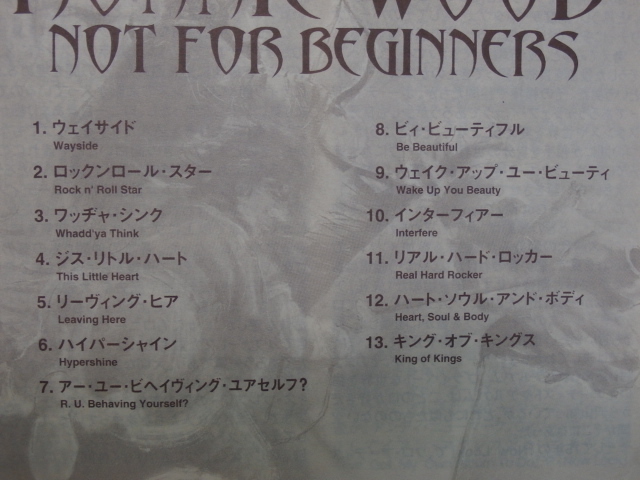 RONNIE WOOD
NOT FOR BEGINNERS
1. ウェイサイド
Wayside
2. ロックンロール・スター
Rock n' Roll Star
3. ワッヂャ・シンク
Whadd'ya Think
4. ジス・リトル・ハート
This Little Heart
5. リーヴィング・ヒア
Leaving Here
6. ハイパーシャイン
Hypershine
7. アー・ユー・ビヘイヴィング・ユアセルフ?
R. U. Behaving Yourself?
8. ビィ・ビューティフル
Be Beautiful
9. ウェイク・アップ・ユー・ビューティ
Wake Up You Beauty
10. インターフィアー
Interfere
11. リアル・ハード・ロッカー
Real Hard Rocker
12. ハート・ソウル・アンド・ボディ
Heart, Soul & Body
13. キング・オブ・キングス
King of Kings